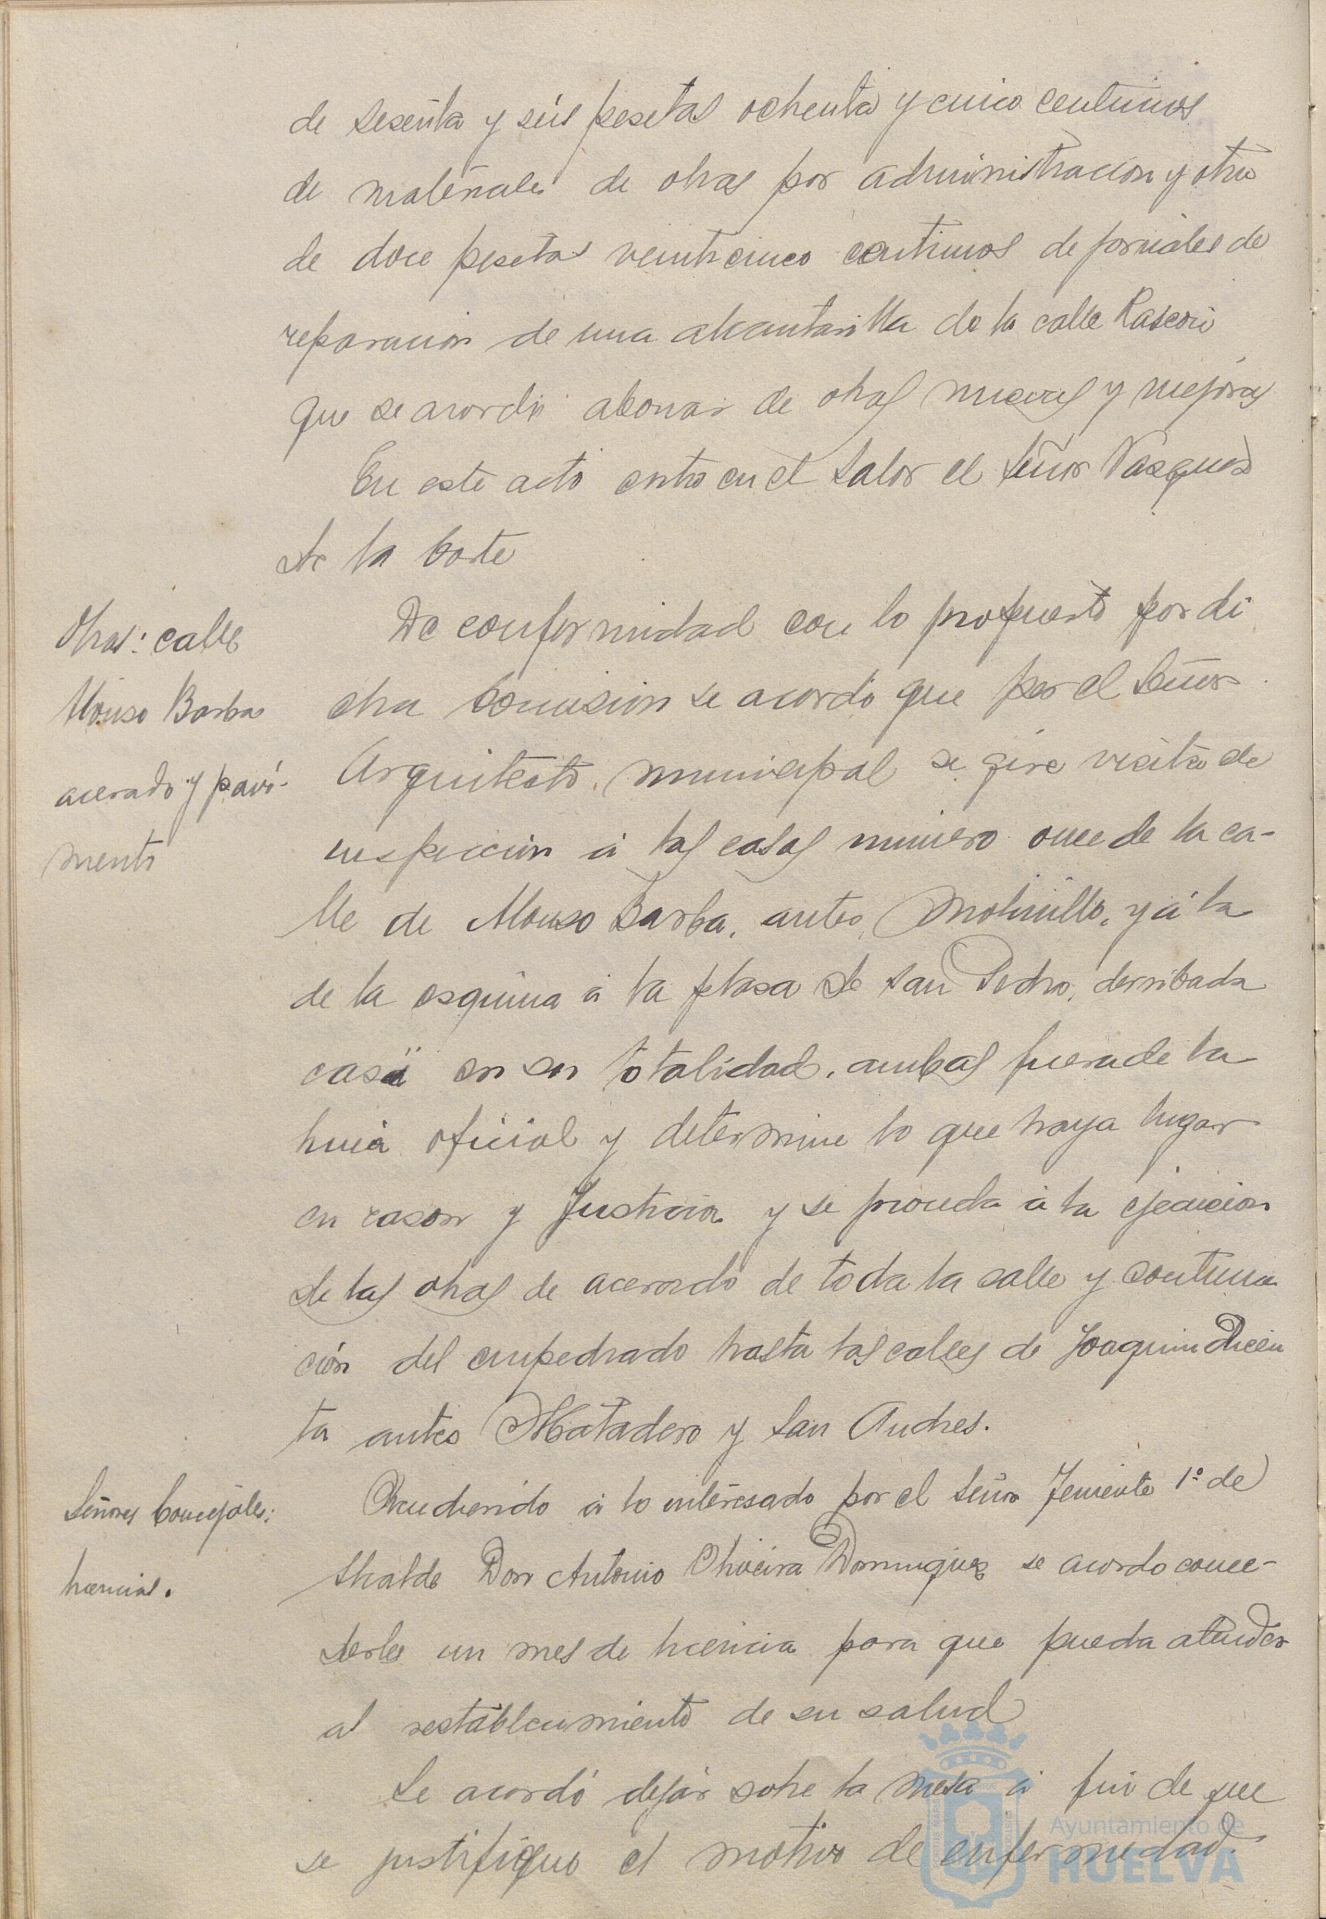 de sesenta y seis pesetas ochenta y cinco centimos
de materiales de obras por administracion y otra
de doce pesetas veinticinco centimos de jornales de
reparacion de una alcantarilla de la calle Rascon
que se acordó abonar de obras nuevas y mejoras
En este acto entro en el Salon el Señor Vasquez
de la Corte
Obras: calle
Alonso Barba
acerado y pavi-
mento
De conformidad con lo propuesto por di
cha Comision se acordo que por el Señor
Arquitecto municipal se gire visita de
inspeccion á las casas numero once de la ca-
lle de Alonso Barba, antes, Molinillo, y á la
de la esquina á la plasa de San Pedro, derribada
casi en su totalidad, ambas fuera de la
linea oficial y determine lo que haya lugar
en rason y Justicia y se proceda á la ejecucion
de las obras de acerado de toda la calle y continua
ción del empedrado hasta las calles de Joaquin Dicen
ta antes Matadero y San Andres.
Señores Concejales:
licencias.
Accediendo á lo interesado por el Señor Teniente 1º de
Alcalde Don Antonio Oliveira Dominguez se acordo conce-
derle un mes de licencia para que pueda atender
al restablecimiento de su salud
Se acordó dejar sobre la mesa á fin de que
se justifique el motivo de enfermedad.
Ayuntamiento de
HUELVA